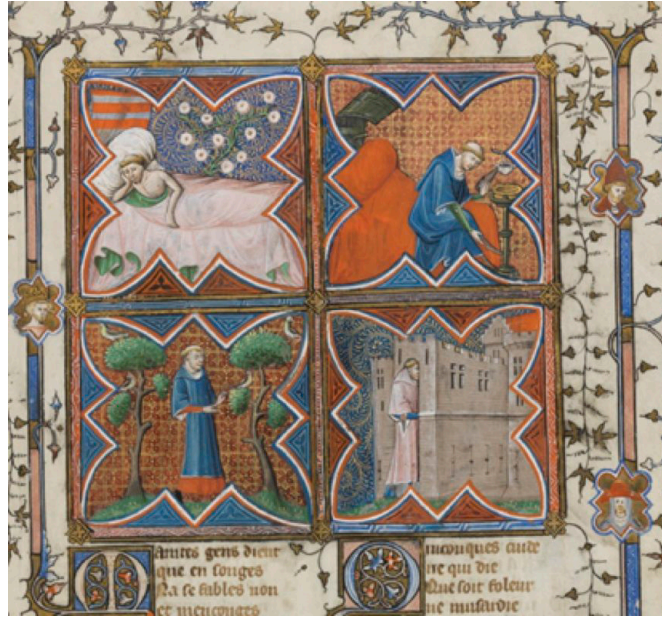 Maintes gens dient
que en songes
Na se fables non
et menconges
Quiconques cuide
ne qui die
Que soit foleur
ne musardie